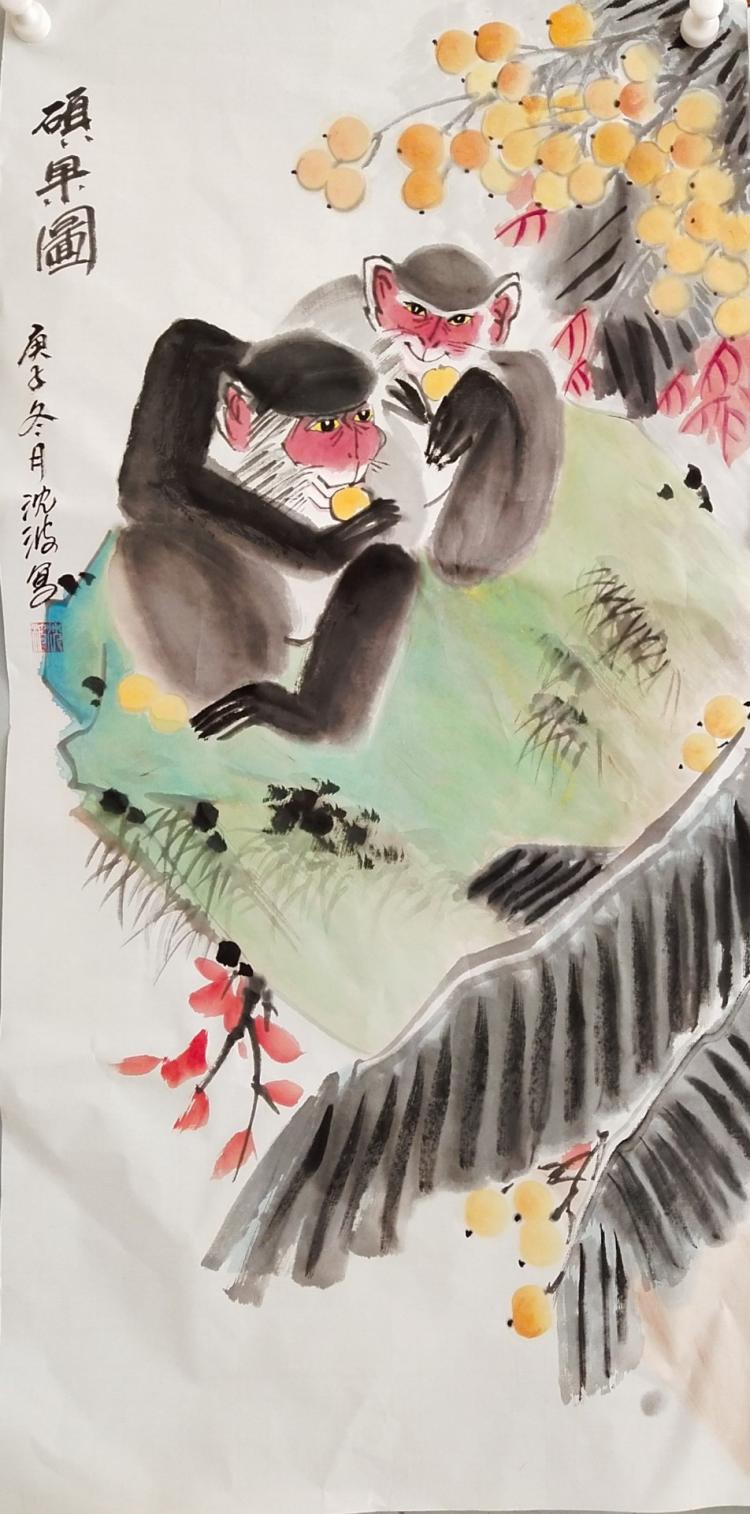 碩果圖
庚子冬月沈波寫